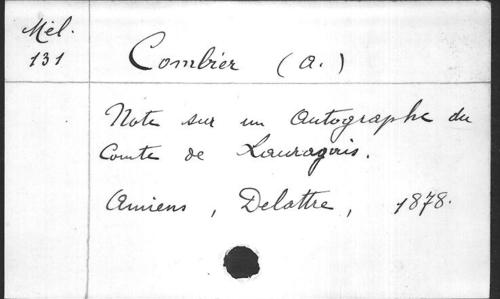 Mél.
131
Combier (A.)
Note sur un Autographe du
Comte de Lauragais.
Amiens, Delattre, 1878.